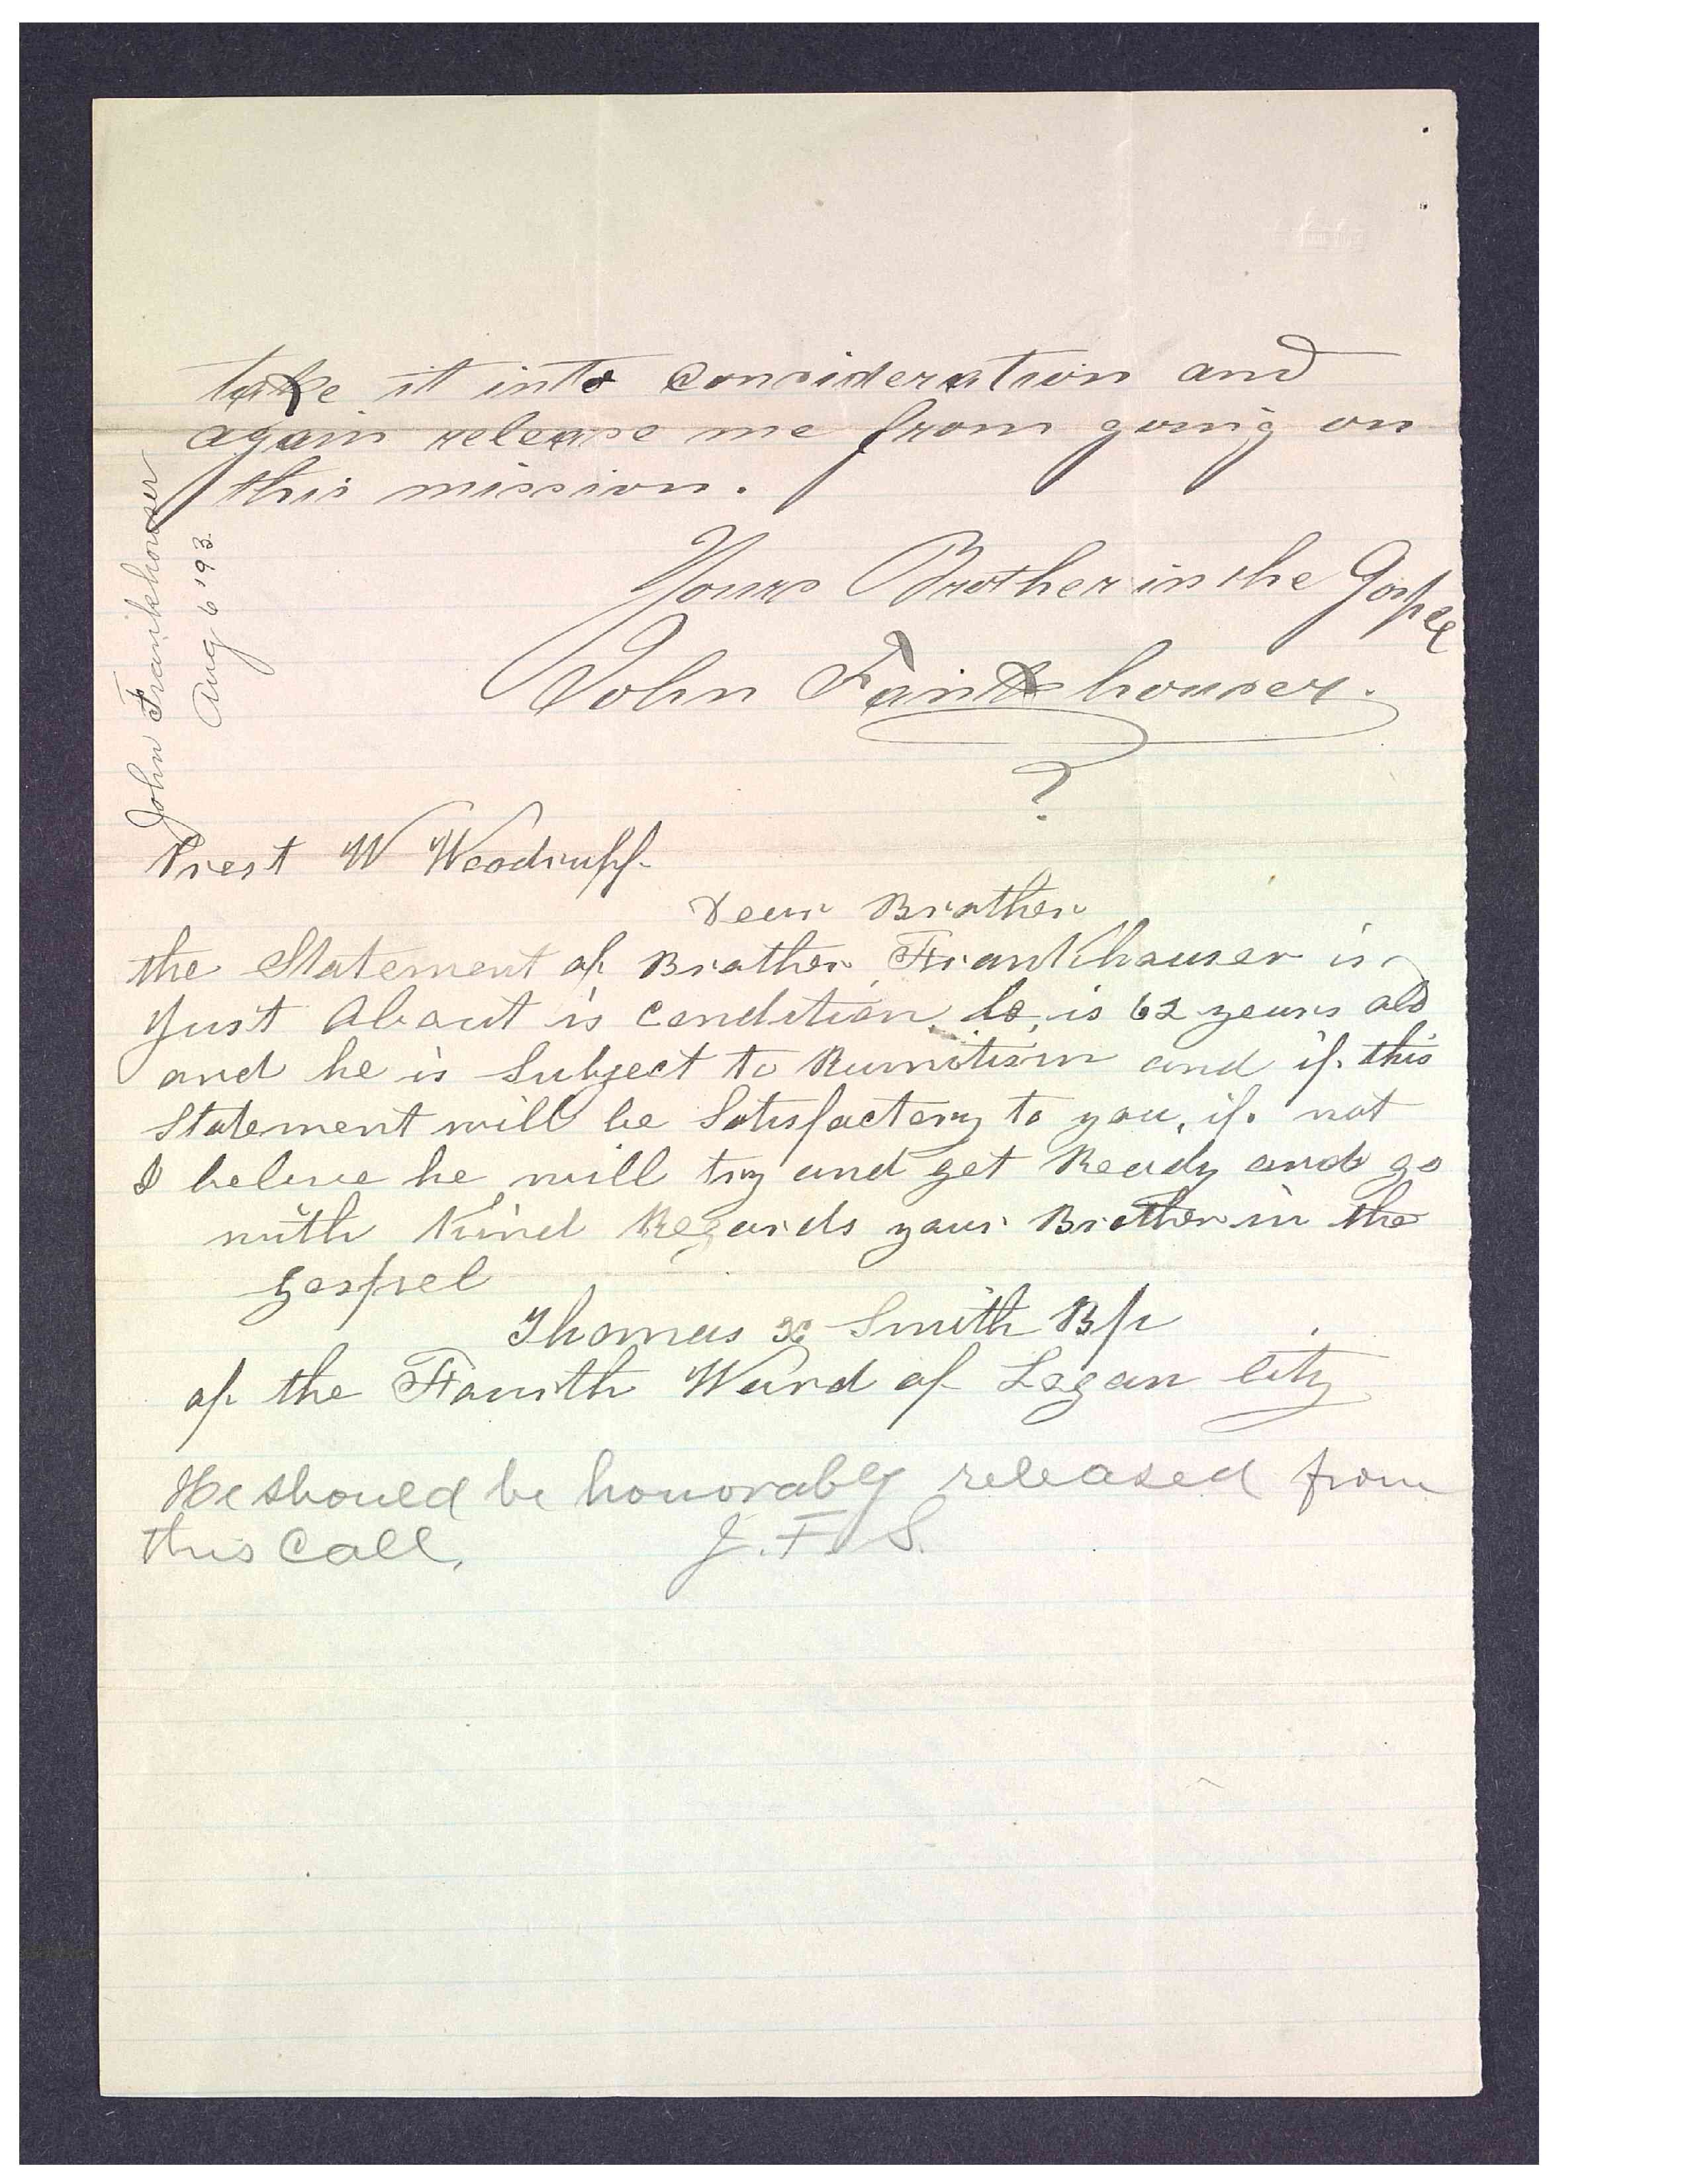 take it into consideration and
again release me from going on
this mission.
Yours Brother in the Gospel
John Fankhouser.
?
John Frankhouser
Aug 6 '93.
Prest W Woodruff.
Dear Brother
the Statement of Brother Frankhauser is
Just About is condition he is 62 years old
and he is Subject to Rumitism and if this
Statement will be Satisfactory to you, if not
I beleve he will try and get Ready and go
with Kind Regards your Brother in the
gospel
Thomas X Smith Bp
of the Fourth Ward of Logan City
He should be honorably released from
this call. J.F.S.